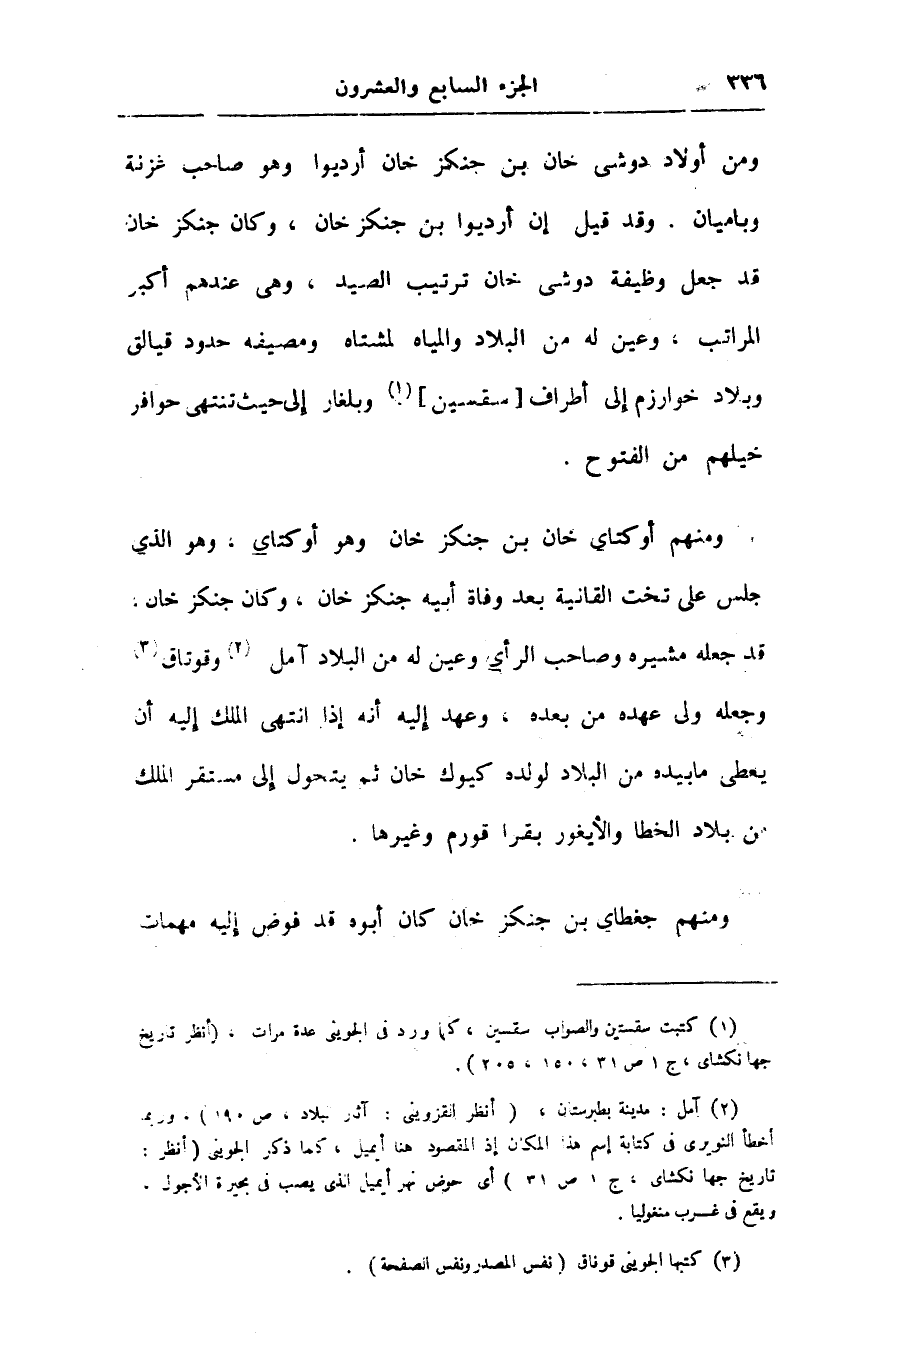 ٣٣٦ الجزء السابع والعشرون
ومن أولاد دوشى خان بن جنكز خان أرديوا وهو صاحب غزنة
وباميان . وقد قيل إن أرديوا بن جنكز خان ، وكان جنكز خان
قد جعل وظيفة دوشى خان ترتيب الصيد ، وهى عندهم أكبر
المراتب ، وعين له من البلاد والمياه لمشتاه ومصيفه حدود قيالق
وبلاد خوارزم إلى أطراف [ سقسين ] (١) وبلغار إلى حيث تنتهى حوافر
خيلهم من الفتوح .
ومنهم أوكتاي خان بن جنكز خان وهو أوكتاي ، وهو الذي
جلس على تخت القانية بعد وفاة أبيه جنكز خان ، وكان جنكز خان
قد جعله مشيره وصاحب الرأي وعين له من البلاد آمل (٢) وقوتاق (٣)
وجعله ولى عهده من بعده ، وعهد إليه أنه إذا انتهى الملك إليه أن
يعطى مابيده من البلاد لولده كيوك خان ثم يتحول إلى مستقر الملك
من بلاد الخطا والأيغور بقرا قورم وغيرها .
ومنهم جغطاي بن جنكز خان كان أبوه قد فوض إليه مهمات
(١) كتبت سقستين والصواب سقسين ، كما ورد فى الجوينى عدة مرات ، (أنظر تاريخ
جها نكشاى ، ج ١ ص ٣١ ، ١٥٠ ، ٢٠٥ ) .
(٢) آمل : مدينة بطبرستان ، ( أنظر القزوينى : آثار البلاد ، ص ١٩٠ ) . وربما
أخطأ النويرى فى كتابة إسم هذا المكان إذ المقصود هنا أيميل ، كما ذكر الجوينى ( أنظر :
تاريخ جها نكشاى ، ج ١ ص ٣١ ) أى حوض نهر أيميل الذى يصب فى بحيرة الأجول .
ويقع فى غرب منغوليا .
(٣) كتبها الجوينى قوناق ( نفس المصدر ونفس الصفحة ) .